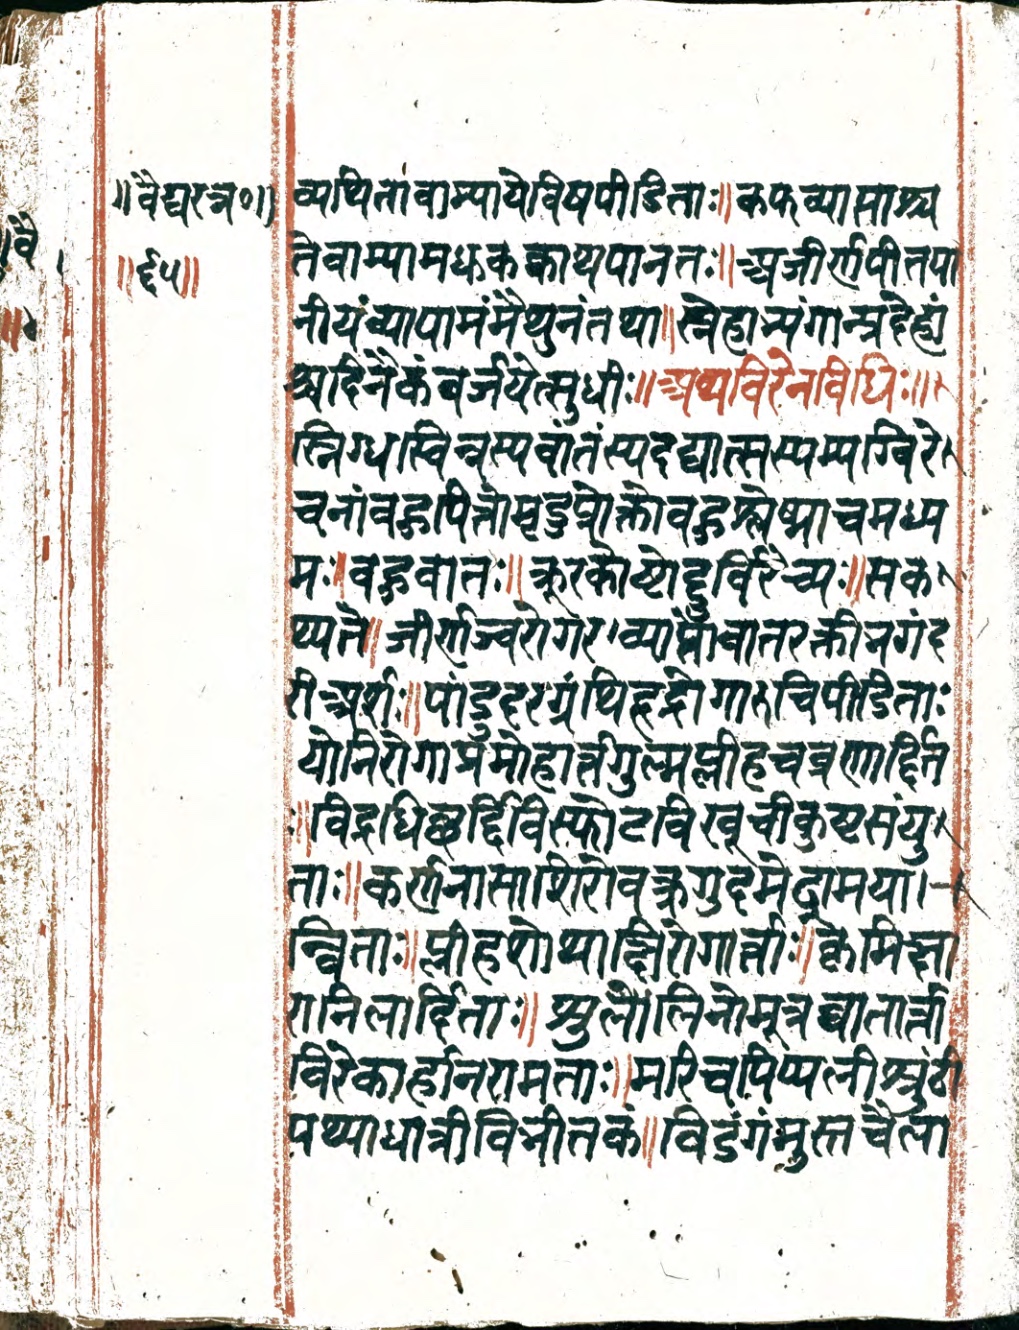 ॥वैद्यरत्न०॥
॥६५॥
व्यथितावाम्यायेविषपीडिताः॥कफव्यासाश्च
तेवाम्यामधुकक्वाथपानतः॥अजीर्णपीतपा
नीयंव्यापामंमैथुनंतथा॥स्नेहाभ्यंगान्प्रदेहां
श्चदिनैकंवर्जयेत्सुधीः॥अथविरेनविधिः॥
स्निग्धस्विन्नस्यवांतस्यदद्यात्सम्यग्विरे
चनांवहुपित्तोमृदुप्रोक्तोवहुश्लेष्माचमध्य
मः॥वहुवातः॥क्रूरकोष्टोदुर्विरेच्यः॥सक
थ्यते॥जीर्णज्वरोगरव्याप्तोवातरक्तीभगंद
रीअर्शः॥पांडुदरग्रंथिहृद्रोगारुचिपीडिताः
योनिरोगाप्रमोहार्त्तगुल्मप्लीहचव्रणार्द्दित
॥विद्रधिछर्द्दिविस्फोटविखूचीकुष्टसंयु
ताः॥कर्णनासाशिरोवक्त्रगुदमेढ्रामया
न्विताः॥प्लीहशोथाक्षिरोगार्त्ताः॥क्रेमिक्षा
रानिलार्दिताः॥शुलौलिनोमूत्रघातार्त्ता
विरेकार्हानरामताः॥मरिचपिप्पलीश्रुंठी
पथ्याधात्रीविभीतकं॥विडंगंमुस्तचैला